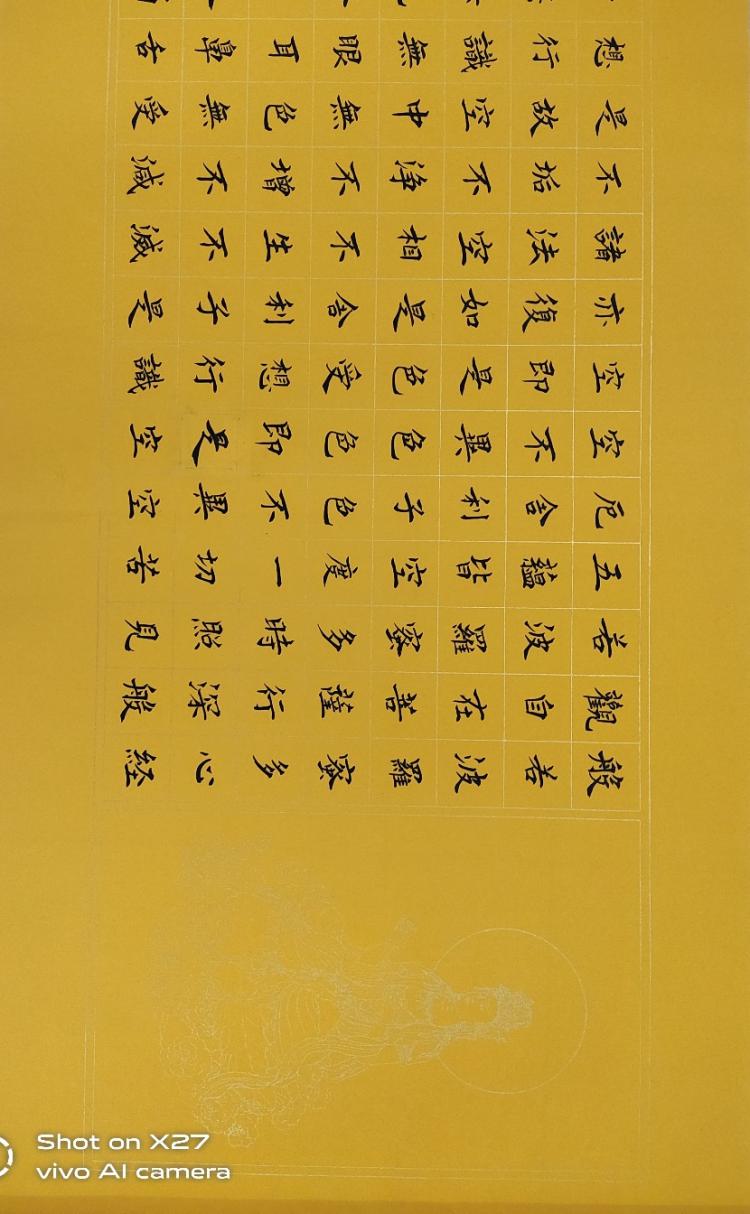 般若波羅蜜多心経
觀自在菩薩行深般
若波羅蜜多時照見
五蘊皆空度一切苦
厄舍利子色不異空
空不異色色即是空
空即是色受想行識
亦復如是舍利子是
諸法空相不生不滅
不垢不淨不增不減
是故空中無色無受
想行識無眼耳鼻舌
Shot on X27
vivo AI camera